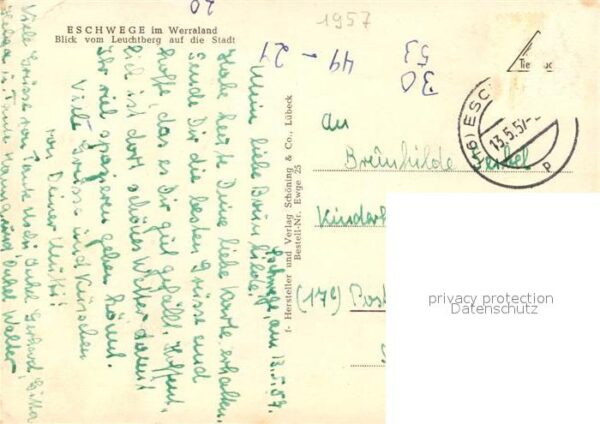 ESCHWEGE im Werraland
Blick vom Leuchtberg auf die Stadt
20
1957
53
30
49 - 21
(16) ESC
13.5.57
P
Eschwege, am 13.5.57.
Mein liebe Brünhilde!
Habe heute Deine liebe Karte erhalten.
Sende Dir die besten Grüsse und
hoffe, das es Dir gut gefällt. Hoffent-
lich ist dort schönes Wetter damit
Ihr viel spazieren gehen könnt.
Viele Grüsse und Küsschen
von Deiner Mutti!
Viele Grüsse von Tante und Onkel Gerhard,
Helga u. Tante Hanna und Onkel Walter
Hersteller und Verlag Schöning & Co., Lübeck
Bestell-Nr. Ewge 25
An
Brünhilde
Kinder
Post
privacy protection
Datenschutz